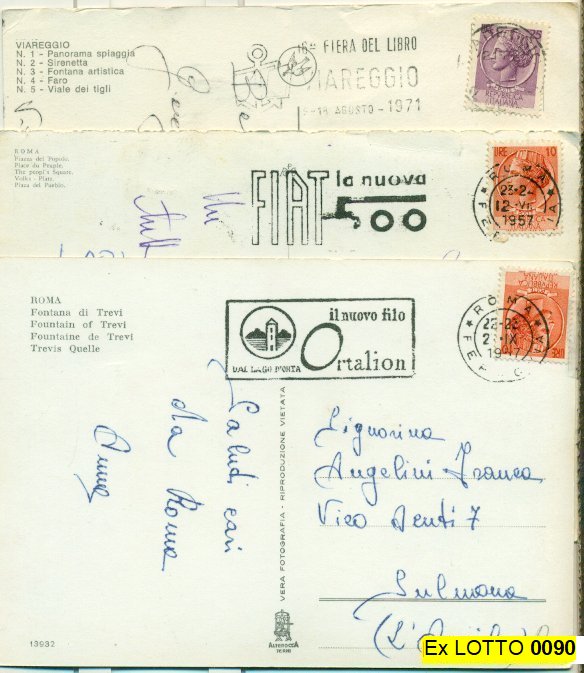 VIAREGGIO
N. 1 - Panorama spiaggia
N. 2 - Sirenetta
N. 3 - Fontana artistica
N. 4 - Faro
N. 5 - Viale dei tigli
FIERA DEL LIBRO
VIAREGGIO
AGOSTO - 1971
ROMA
Piazza del Popolo.
Place du Peuple.
The peopl's Square.
Volks - Platz.
Plaza del Pueblo.
FIAT la nuova
500
LIRE 10
ROMA
23-24
12 VII
1957
FERROVIA
ROMA
Fontana di Trevi
Fountain of Trevi
Fountaine de Trevi
Trevis Quelle
il nuovo filo
Ortalion
DAL LAGO D'ORTA
ROMA
Saluti cari
da Roma
Anna
VERA FOTOGRAFIA - RIPRODUZIONE VIETATA
Signorina
Angelini Franca
Vico Venti 7
Sulmona
(L'Aquila)
13932
ALTEROCCA
TERNI
Ex LOTTO 0090